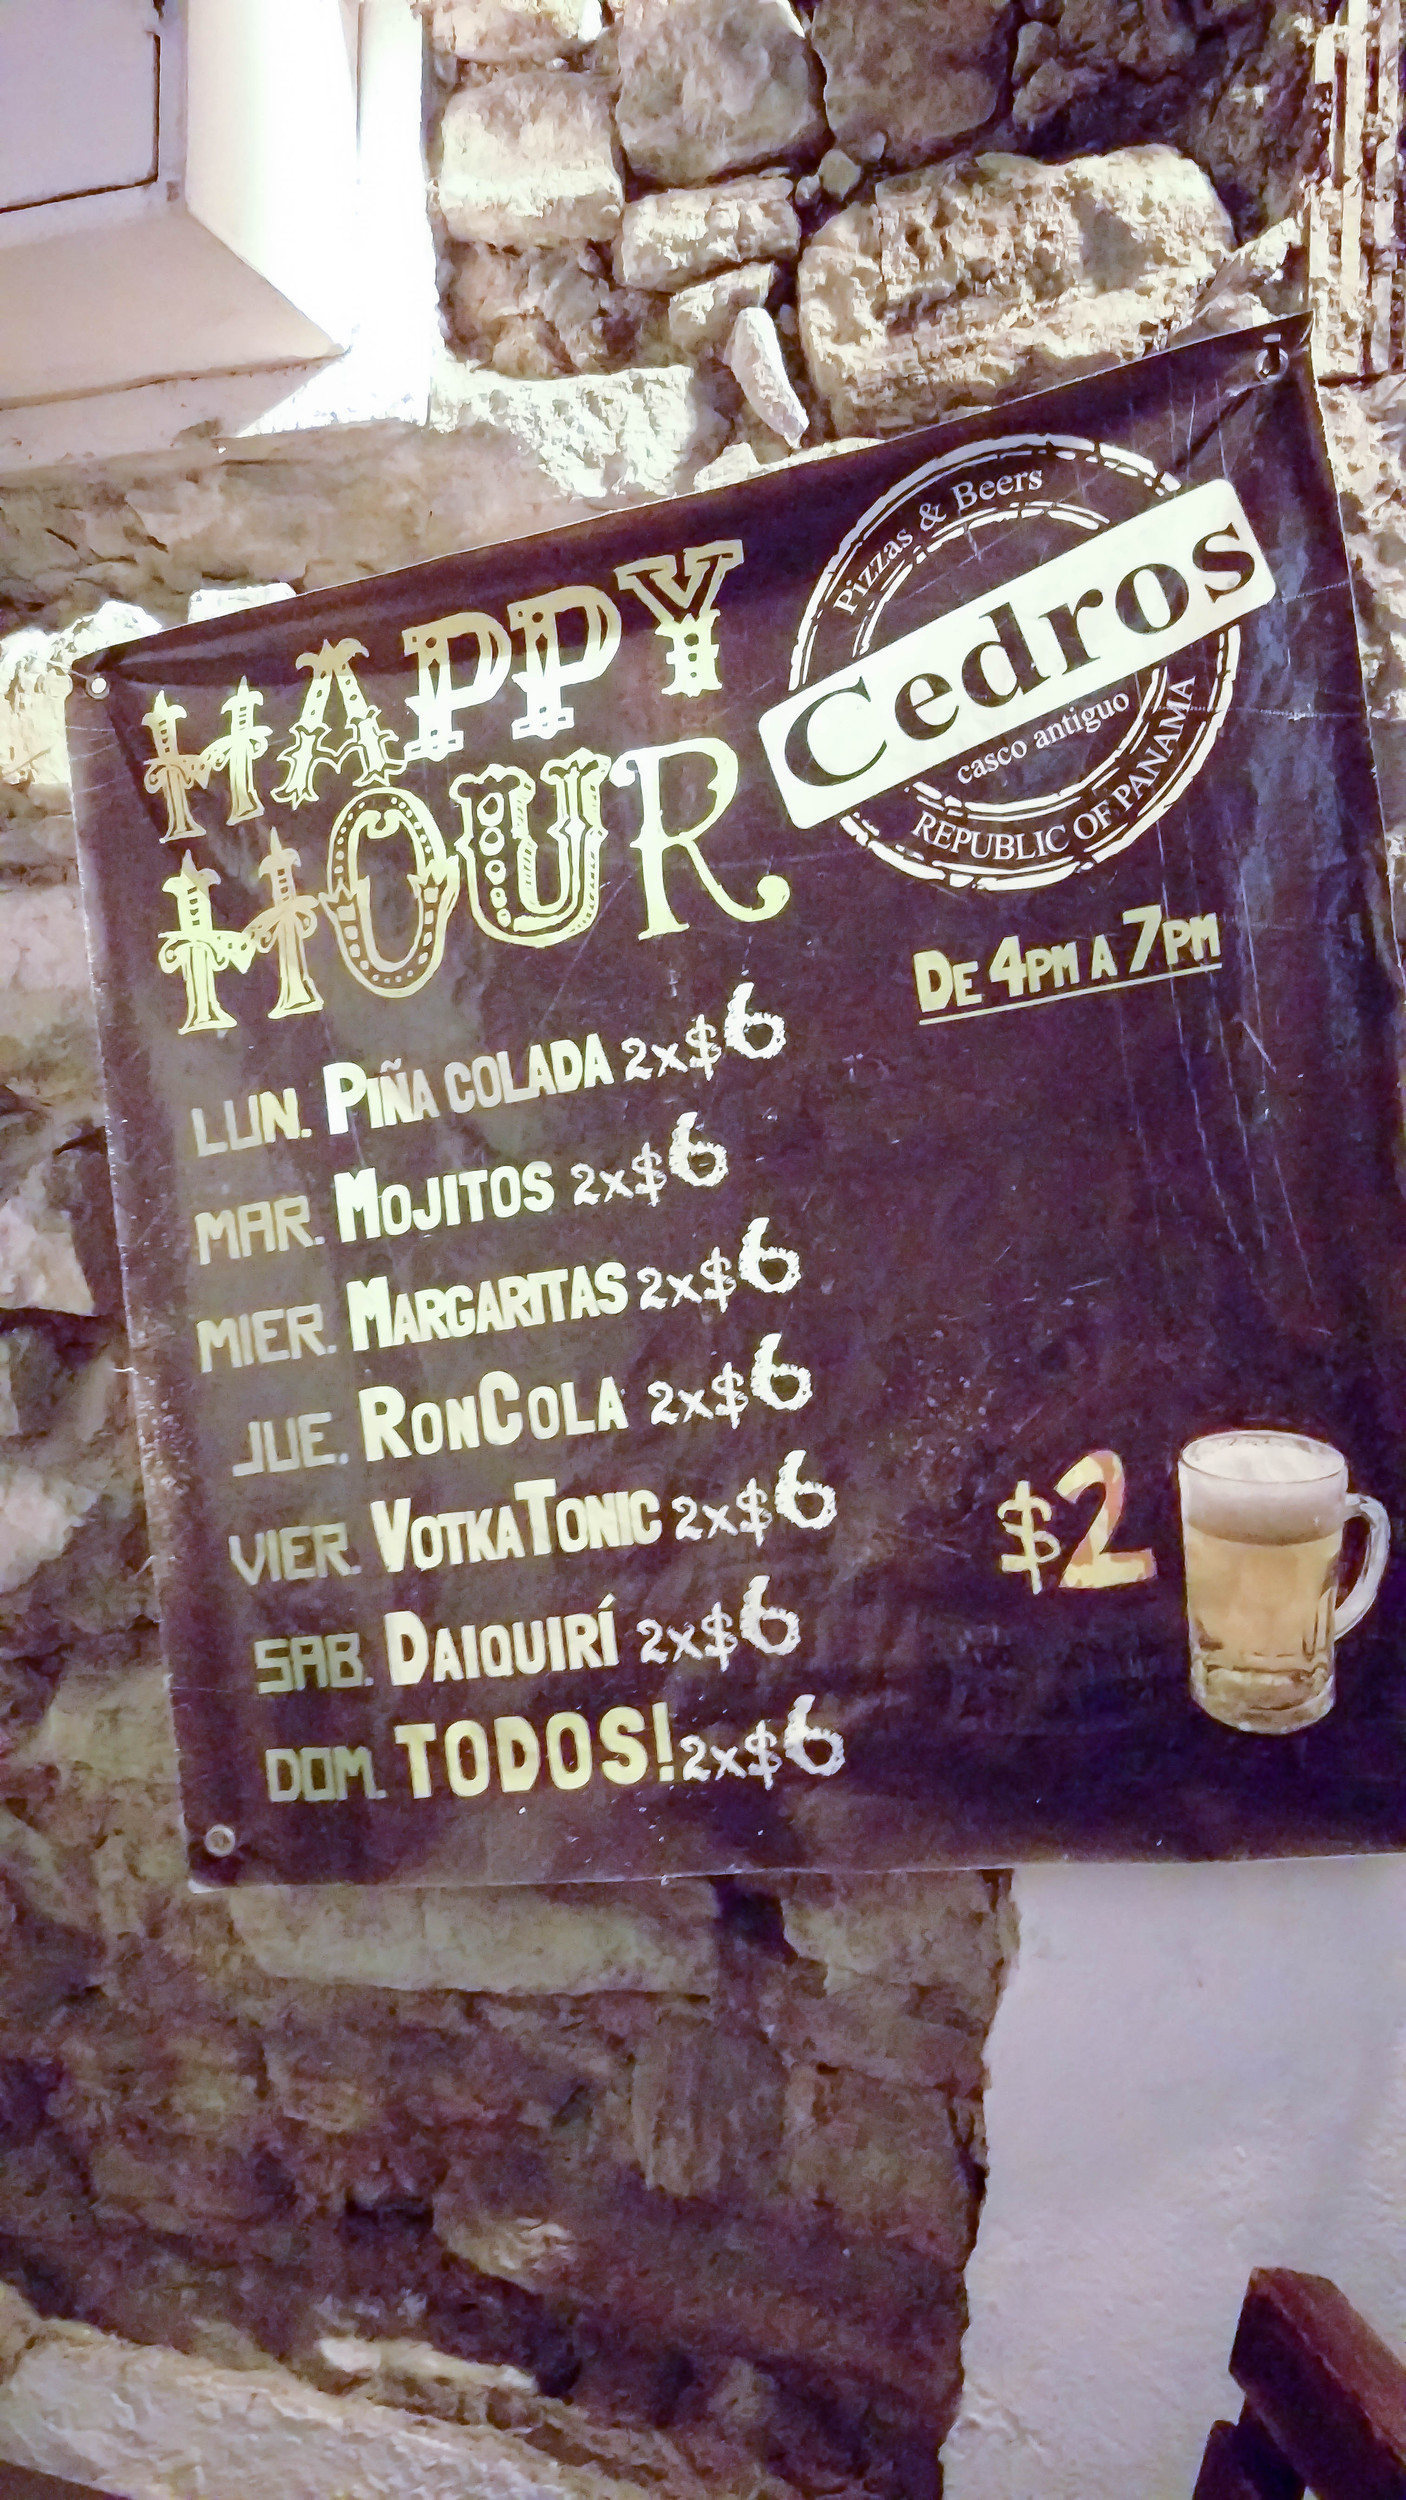 HAPPY
HOUR
Pizzas & Beers
Cedros
casco antiguo
REPUBLIC OF PANAMA
DE 4PM A 7PM
LUN. PIÑA COLADA 2x$6
MAR. MOJITOS 2x$6
MIER. MARGARITAS 2x$6
JUE. RONCOLA 2x$6
VIER. VOTKATONIC 2x$6
SAB. DAIQUIRÍ 2x$6
DOM. TODOS! 2x$6
$2